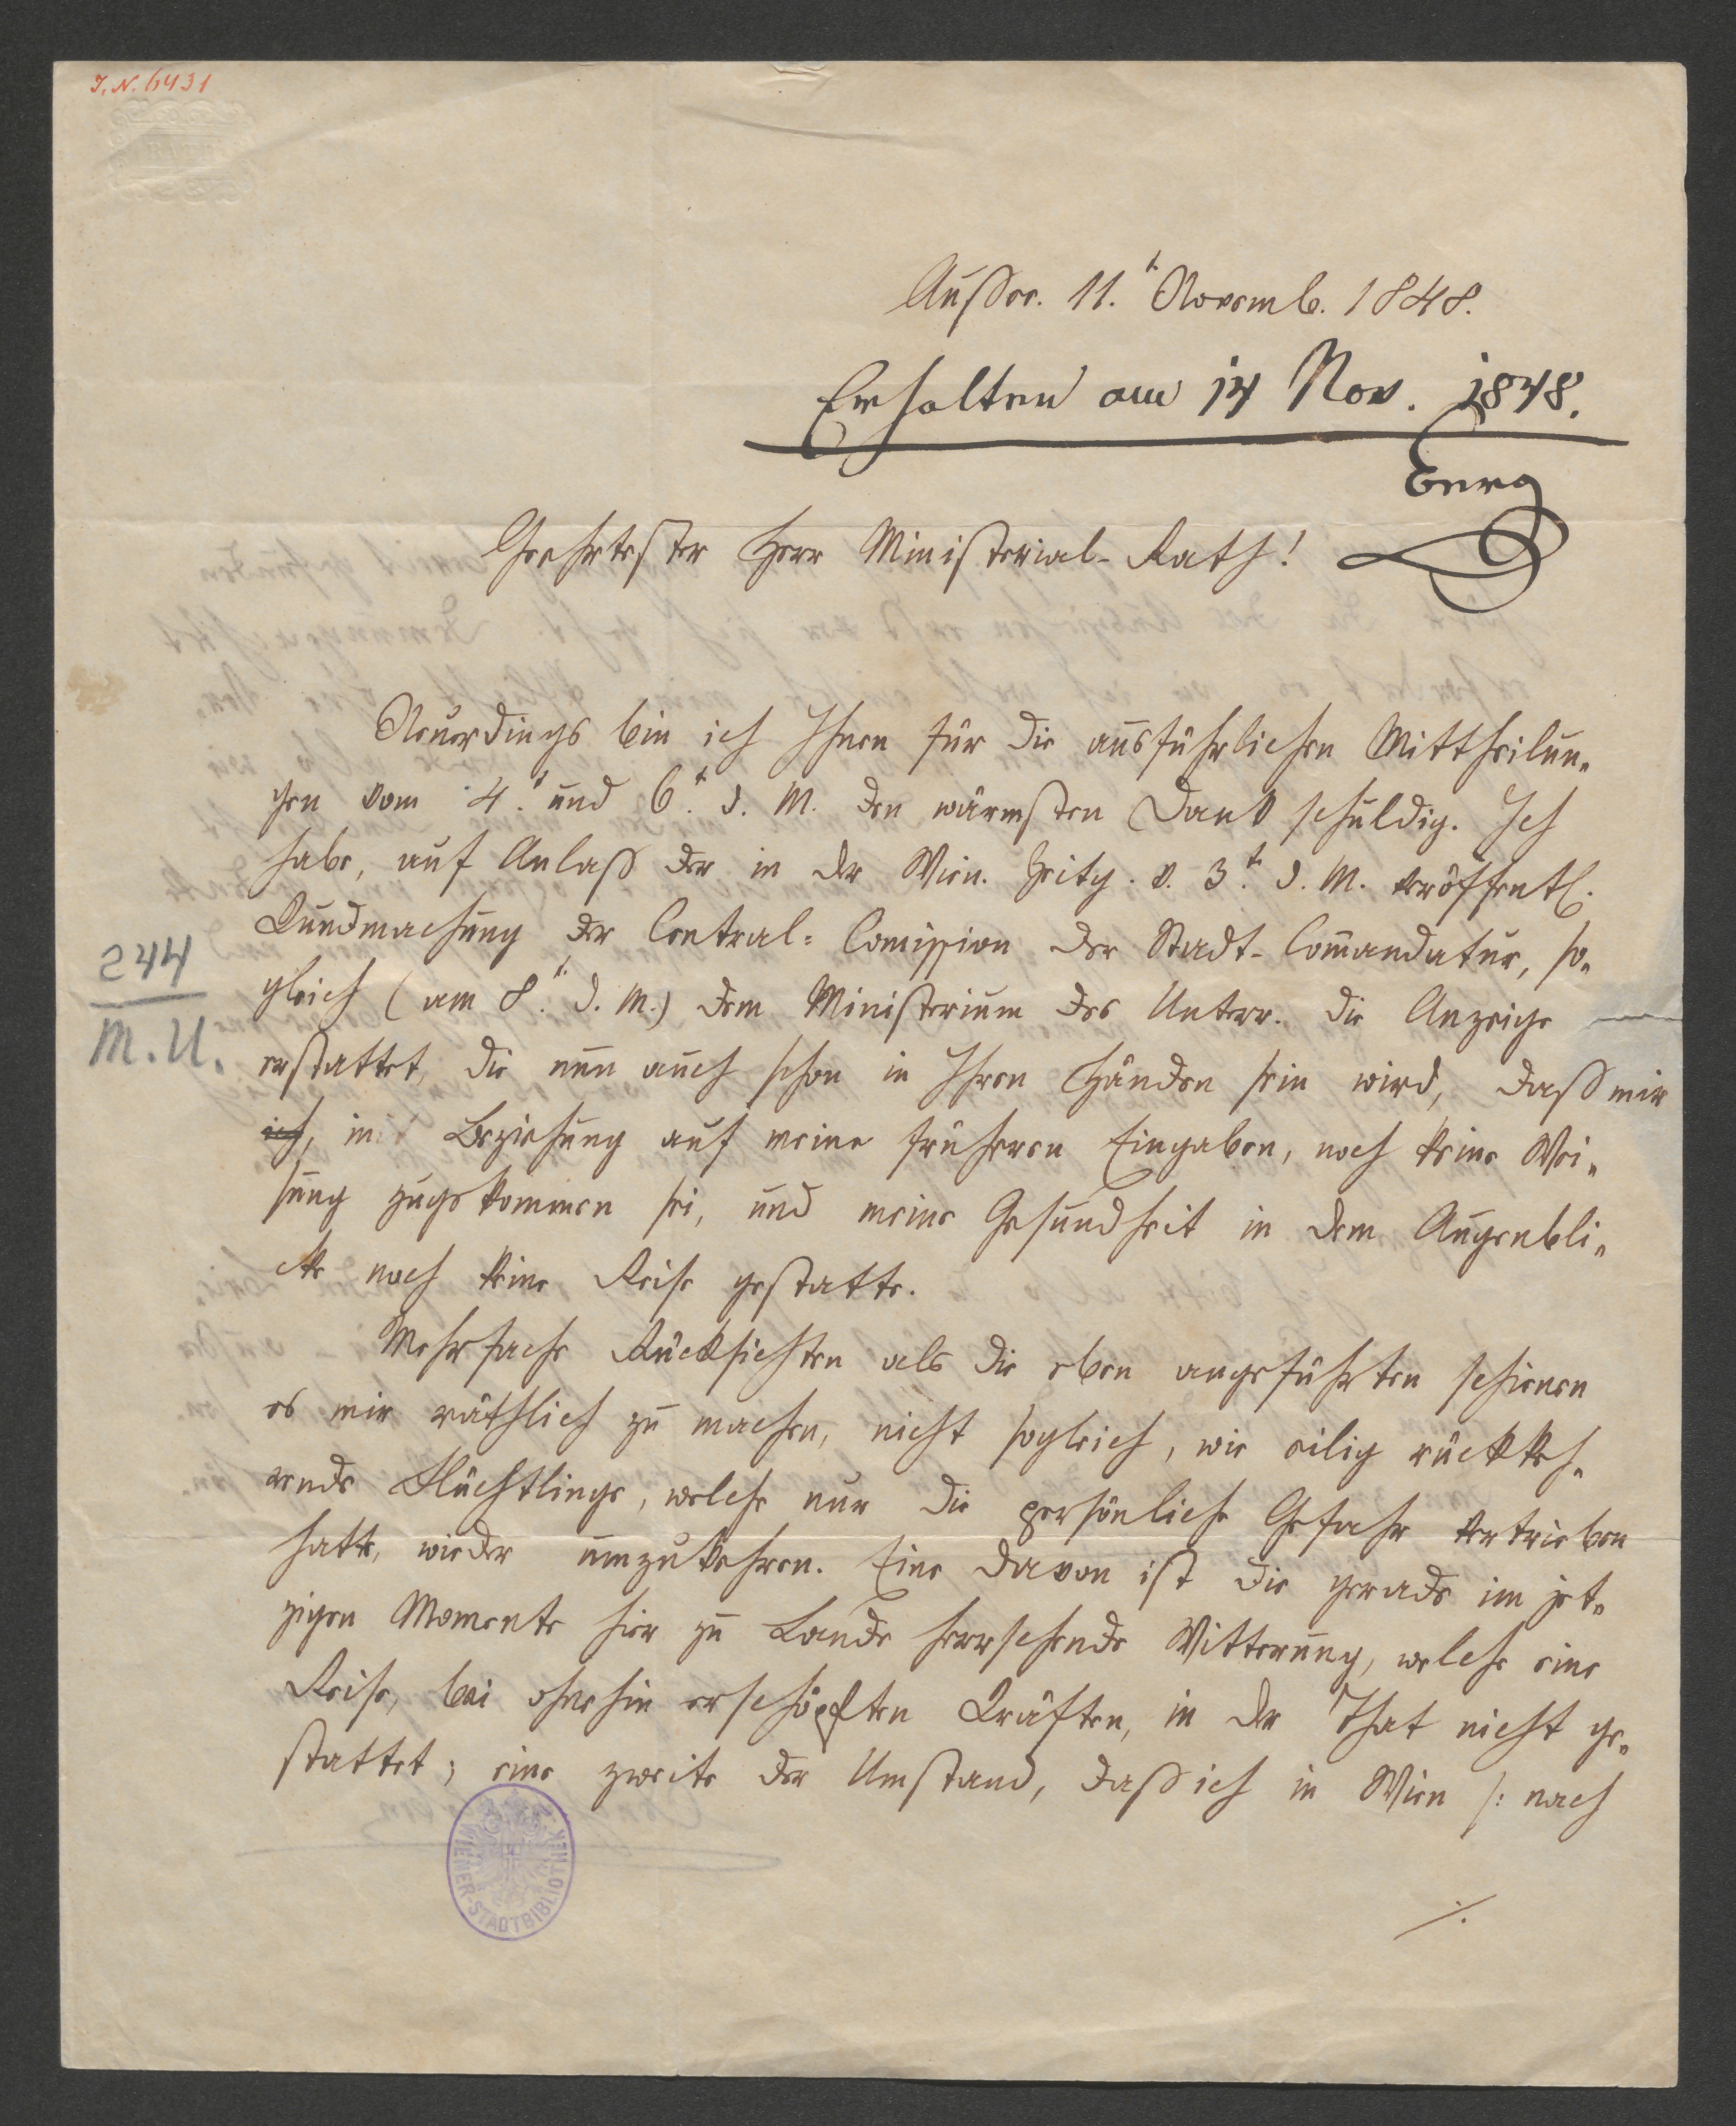 I. N. 6431
Aussee. 11.t Novemb. 1848.
Erhalten am 14 Nov. 1848.
Geehrtester Herr Ministerial-Rath!
Neuerdings bin ich Ihnen für die ausführlichen Mittheilun-
gen vom 4.t und 6.t d. M. den wärmsten Dank schuldig. Ich
habe, auf Anlaß der in der Wien. Zeitg. v. 3.t d. M. veröffentl.
Kundmachung der Central-Comission der Stadt-Comandatur, so-
gleich (am 8.t d. M.) dem Ministerium des Unterr. die Anzeige
244
M. U.
erstattet, die nun auch schon in Ihren Händen sein wird, daß mir
ich, mit Beziehung auf meine früheren Eingaben, noch keine Wei-
sung zugekommen sei, und meine Gesundheit in dem Augenbli-
cke noch keine Reise gestatte.
Mehrfache Rücksichten als die eben angeführten schienen
es mir räthlich zu machen, nicht sogleich, wie eilig rückkeh-
rende Flüchtlinge, welche nur die persönliche Gefahr vertrieben
hatte, wieder umzukehren. Eine davon ist die gerade im jet-
zigen Momente hier zu Lande herrschende Witterung, welche eine
Reise, bei ohnehin erschöpften Kräften, in der That nicht ge-
stattet; eine zweite der Umstand, daß ich in Wien /: nach
./.
WIENER-STADTBIBLIOTHEK